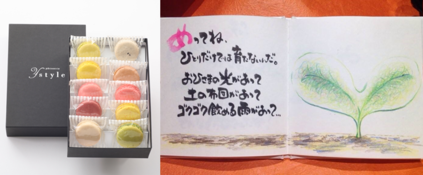 y style
めってね、
ひとりだけでは育たないんだ。
おひさまの光があって
土の布団があって
ゴクゴク飲める雨があって…